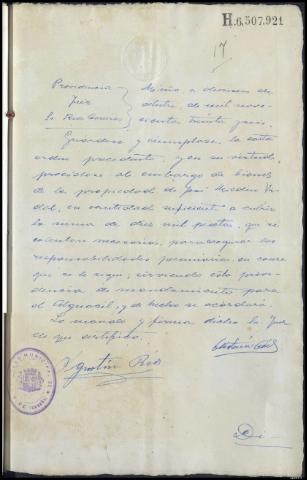 H.6,507,921
17
Providencia
Juez
Sr. 
Miño, a diez
octubre de mil nove-
cientos treinta y seis.
Guárdese y cúmplase la carta
orden precedente, y en su virtud,
procédase al embargo de bienes
de la propiedad de José
en cantidad suficiente a cubrir
la suma de diez mil pesetas, que se
calculan necesarias, para asegurar las
responsabilidades pecuniarias en causa
que se le sigue; sirviendo esta provi-
dencia de mandamiento para
el Alguacil, y de hecho se acordará.
Lo mandó y firma dicho Sr. Juez
de que certifico.
Agustín
Di-